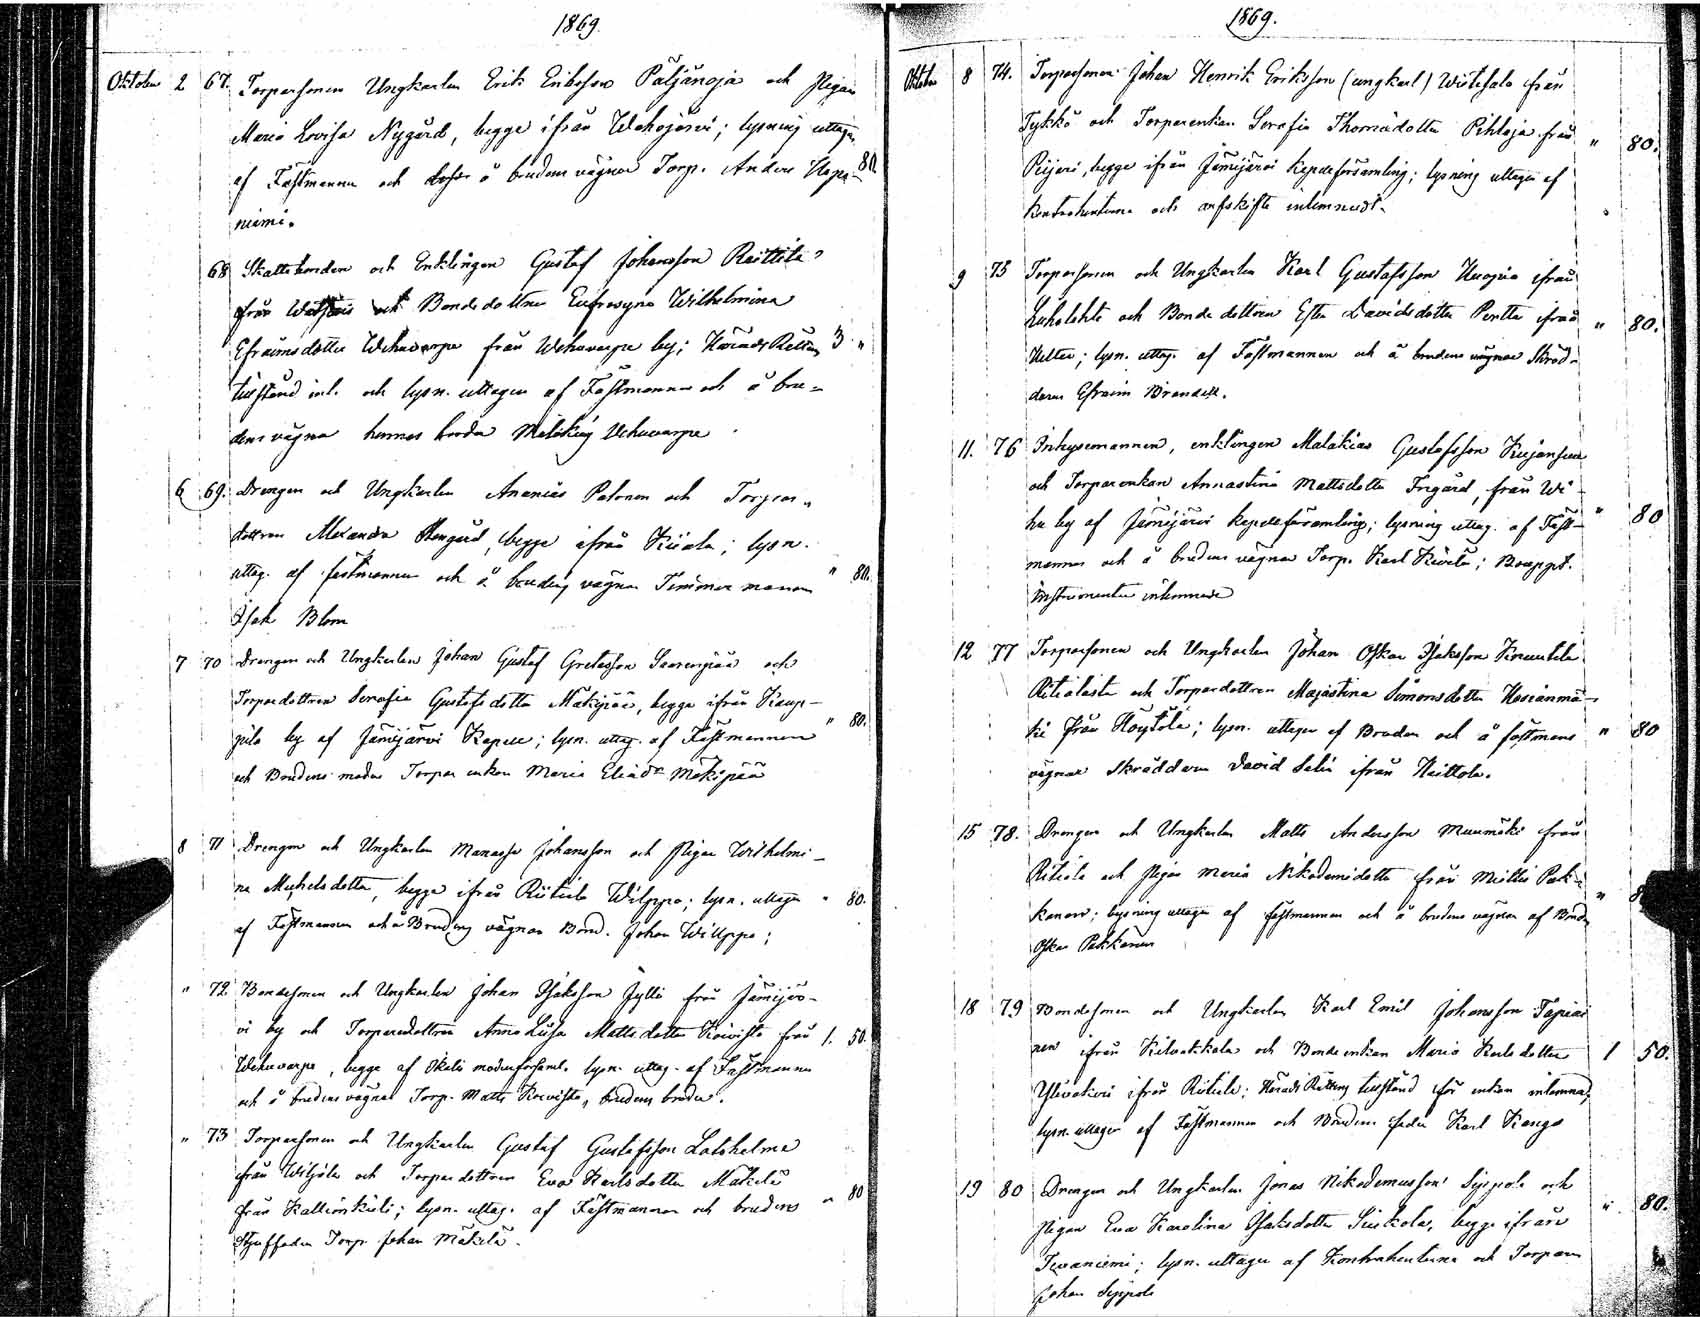 1869.
Oktober 2 67. Torparsonen Ungkarlen Erik Eriksson Päljänoja och Pigan
Maria Lovisa Nygård, begge ifrån Wehojärvi; lysning uttagen
af Fästmannen och å brudens vägnar Torp. Anders Hapa- 80.
niemi.
68 Skattebonden och Enklingen Gustaf Johansson
från och Bondedottren Eufrosyna Wilhelmina
Efraimsdotter Wehuvarpe från Wehuvarpe by; Härads Rättens 3 "
tillstånd inl. och lysn. uttagen af Fästmannen och å bru-
dens vägna hennes broder Wehuvarpe
6 69. Drengen och Ungkarlen Ananias Petonen och Torpar-
dottren Alexandra begge ifrån Kiiala; lysn.
uttag. af fästmannen och å brudens vägnar Timmermannen " 80.
Isak Blom
7 70 Drengen och Ungkarlen Johan Gustaf Gretasson Saarenpää och
Torparedottren Serafia Gustafsdotter Mäkipää, begge ifrån Kaup-
pila by af Jämijärvi Kapell; lysn. uttag. af Fästmannen " 80.
och Brudens moder Torpar enkan Maria Eliædr Mäkipää
8 71 Drengen och Ungkarlen Manasse Johansson och Pigan Wilhelmi-
na Michelsdotter, begge ifrån Riitiala Wilppo; lysn. uttagen " 80.
af Fästmannen och å Brudens vägnar Bond. Johan Willppo;
" 72. Bondesonen och Ungkarlen Johan Isaksson Jylli från Jämijär-
vi by och Torparedottren Anna Lisa Mattsdotter Koivisto från 1. 50.
Wehuvarpe, begge af Ikalis moderförsaml. lysn. uttag. af Fästmannen
och å brudens vägnar Torp. Matts Koivisto, brudens broder.
" 73 Torparsonen och Ungkarlen Gustaf Gustafsson Latoholma
från Wiljala och Torparedottren Eva Karlsdotter Mäkelä
från Kallionkieli; lysn. uttag. af Fästmannen och brudens " 80
Styffader Torp. Johan Mäkelä.
1869.
Oktober 8 74. Torparsonen Johan Henrik Eriksson (ungkarl) Wiitesalo från
Tykkö och Torparenkan Serafia Thomædotter Pihlaja från " 80.
Peijari, begge ifrån Jämijärvi Kapellförsamling; lysning uttagen af
Kontrahenterna och aufskifte inlemnadt.
9 75 Torparsonen och Ungkarlen Karl Gustafsson Kuopio ifrån
Luhalahti och Bonde dottren Ester Davidsdotter Pentti ifrån " 80.
Kelter; lysn. uttag. af Fästmannen och å brudens vägnar Skräd-
daren Efraim Brandell.
11. 76 Inhysemannen, enklingen Malakias Gustafsson Kujansuu
och Torparenkan Annastina Mattsdotter Frigård, från Wi-
hu by af Jämijärvi Kapellförsamling; lysning uttag. af Fäst- " 80
mannen och å brudens vägnar Torp. Karl Kivelä; Bouppt.
Instrumenter inlemnade
12 77 Torparsonen och Ungkarlen Johan Oskar Isaksson
Riitialasta och Torparedottren Majastina Simonsdotter Harianmä-
ki från Höytölä; lysn. uttagen af Bruden och å fästmans " 80
vägnar Skräddaren David Selin ifrån Heittola.
15 78. Drengen och Ungkarlen Matts Andersson Muumäki från
Riitiala och Pigan Maria Nikodemidotter från Miettis Park-
kanow; lysning uttagen af fästmannen och å brudens vägnar af Bond. " 8
Oskar Pakkanen
18 79 Bondesonen och Ungkarlen Karl Emil Johansson Tapiai
nen ifrån Kilvakkala och Bondeenkan Maria Karlsdotter 1 50.
Ylivakeri ifrån Riitiala; Härads Rättens tillstånd för enkan inlemnad;
lysn. uttagen af Fästmannen och Brudens fader Karl Kango
19 80 Drengen och Ungkarlen Jonas Nikodemusson Syppola och
Pigan Eva Karolina Isaksdotter Siukola, begge ifrån " 80.
Tevaniemi; lysn. uttagen af Kontrahenterna och Torparen
Johan Syppola